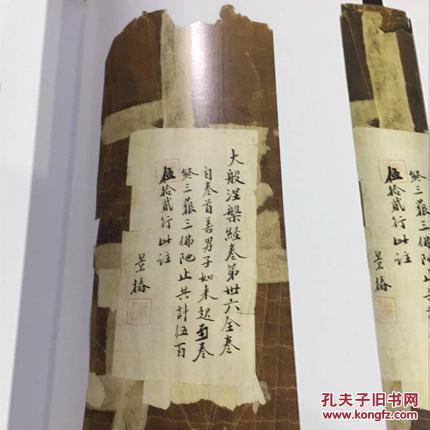 大般涅槃經卷第卅六全卷
自卷首善男子如来起至卷
終三藐三佛陁止共計伍百
伍拾貳行此註
景椿
終三藐三佛陁止共計伍百
伍拾貳行此註
景椿
孔夫子旧书网